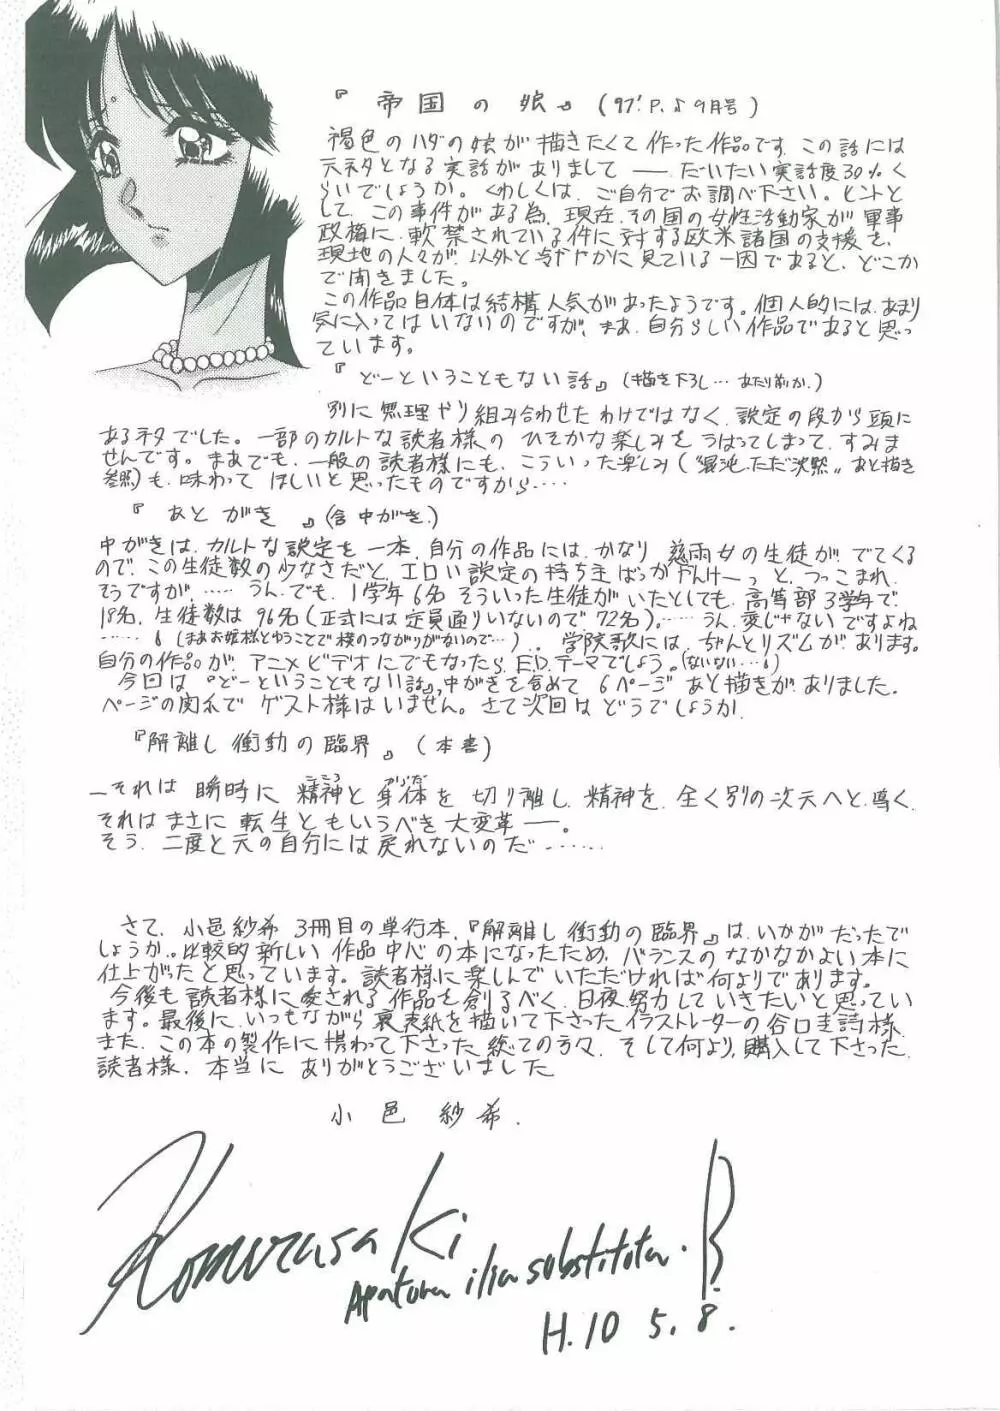 『 帝国の娘 』 (97' P.♪ 9月号)
褐色のハダの娘が描きたくて作った作品です。この話には
元ネタとなる実話がありまして ── だいたい実話度30%く
らいでしょうか。くわしくは、ご自分でお調べ下さい。ヒントと
して、この事件がある為、現在、その国の女性活動家が軍事
政権に、軟禁されている件に対する欧米諸国の支援を、
現地の人々が、以外と冷ややかに見ている一因であると、どこか
で聞きました。
この作品自体は結構人気があったようです。個人的には、あまり
気に入ってはいないのですが、まぁ、自分らしい作品であると思っ
ています。
『どーということもない話』(描き下ろし… あたり前か.)
別に無理やり組み合わせたわけではなく、設定の段から頭に
あるネタでした。一部のカルトな読者様の ひそかな楽しみを うばってしまって、すみま
せんです。まあでも、一般の読者様にも、こういった楽しみ(〝混沌、ただ沈黙〟あと描き
参照)も、味わって ほしいと思ったものですから……
『 あとがき 』(含 中がき.)
中がきは、カルトな設定を一本、自分の作品には、かなり 慈雨女の生徒が でてくる
ので、この生徒数の少なさだと、エロい設定の持ち主ばっかやんけーっ と、つっこまれ
そうですが、…… うん、でも、1学年6名 そういった生徒がいたとしても、高等部3学年で
18名、生徒数は 96名(正式には定員通りいないので 72名)。…… うん、変じゃないですよね
……6 (まあお姫様とゆうことで横のつながりがかいので…)。. 学院歌には、ちゃんとリズムが あります。
自分の作品が、アニメビデオにでもなったら、E.D.テーマでしょう。(ないない…6)
今回は『どーということもない話』、中がきを含めて 6ページ あと描きが、ありました。
ページの関系で ゲスト様はいません。さて次回は どうでしょうか
『解離し衝動の臨界 』 (本書)
─それは 瞬時に 精神と 身体を 切り離し 精神を、全く別の次元へと 導く、
こころ からだ
それは まさに 転生ともいうべき 大変革──。
そう、二度と元の自分には戻れないのだ……
さて、小邑紗希 3冊目の単行本、『解離し衝動の臨界』は、いかがだったで
しょうか。比較的新しい 作品中心の本になったため、バランスの なかなかよい本に
仕上がったと思っています。読者様に楽しんで いただければ何よりであります。
今後も 読者様に愛される 作品を創るべく、日夜努力していきたいと思ってい
ます。最後に、いつもながら裏表紙を描いて下さったイラストレーターの谷口圭詩様、
また、この本の製作に携わって下さった 総ての方々、そして何より、購入して下さった
読者様、本当に ありがとうございました
小邑 紗希.
KomurasaKi
Apatura ilia substituta. B.
H.10 5. 8.